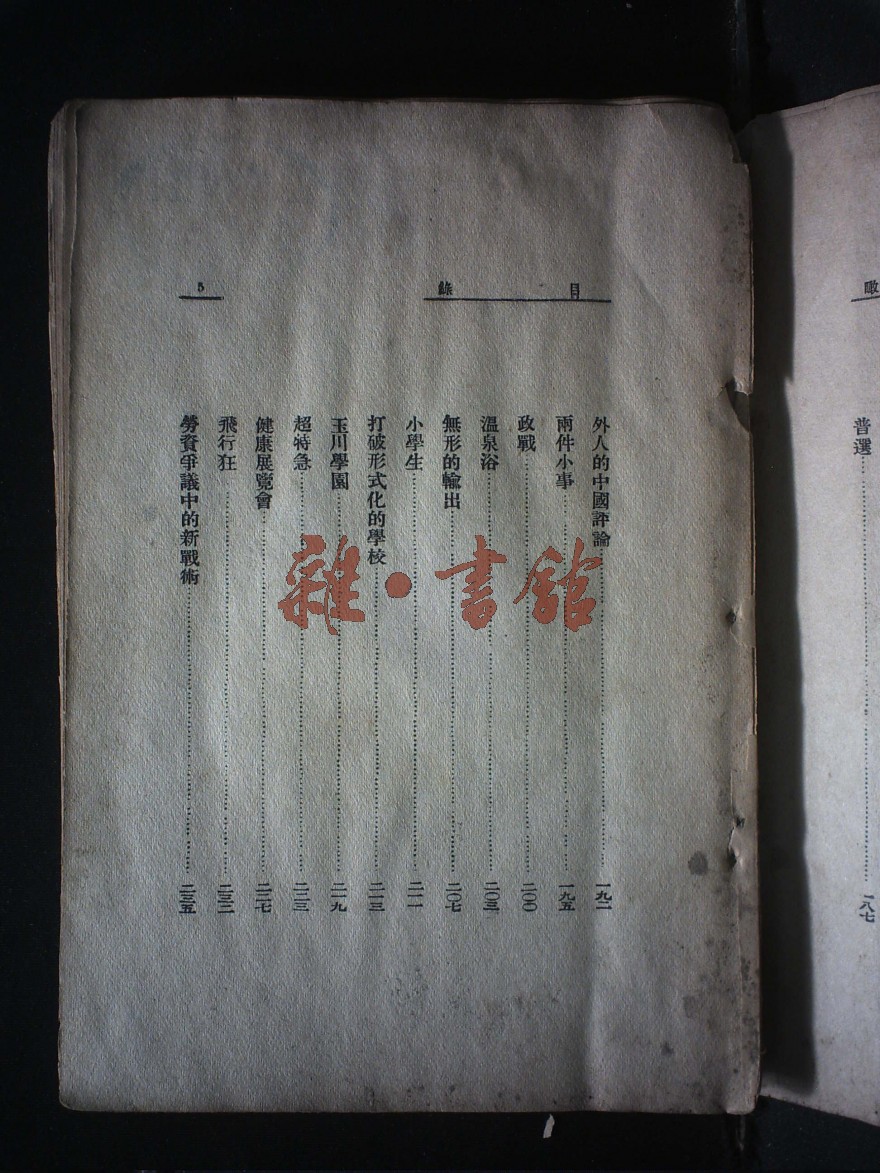 瞰
普選……一八七
目錄
5
外人的中國評論……一九二
兩件小事……一九五
政戰……二〇〇
溫泉浴……二〇三
無形的輸出……二〇七
小學生……二一一
打破形式化的學校……二一三
玉川學園……二一九
超特急……二二三
健康展覽會……二二七
飛行狂……二三二
勞資爭議中的新戰術……二三五
雜·書館